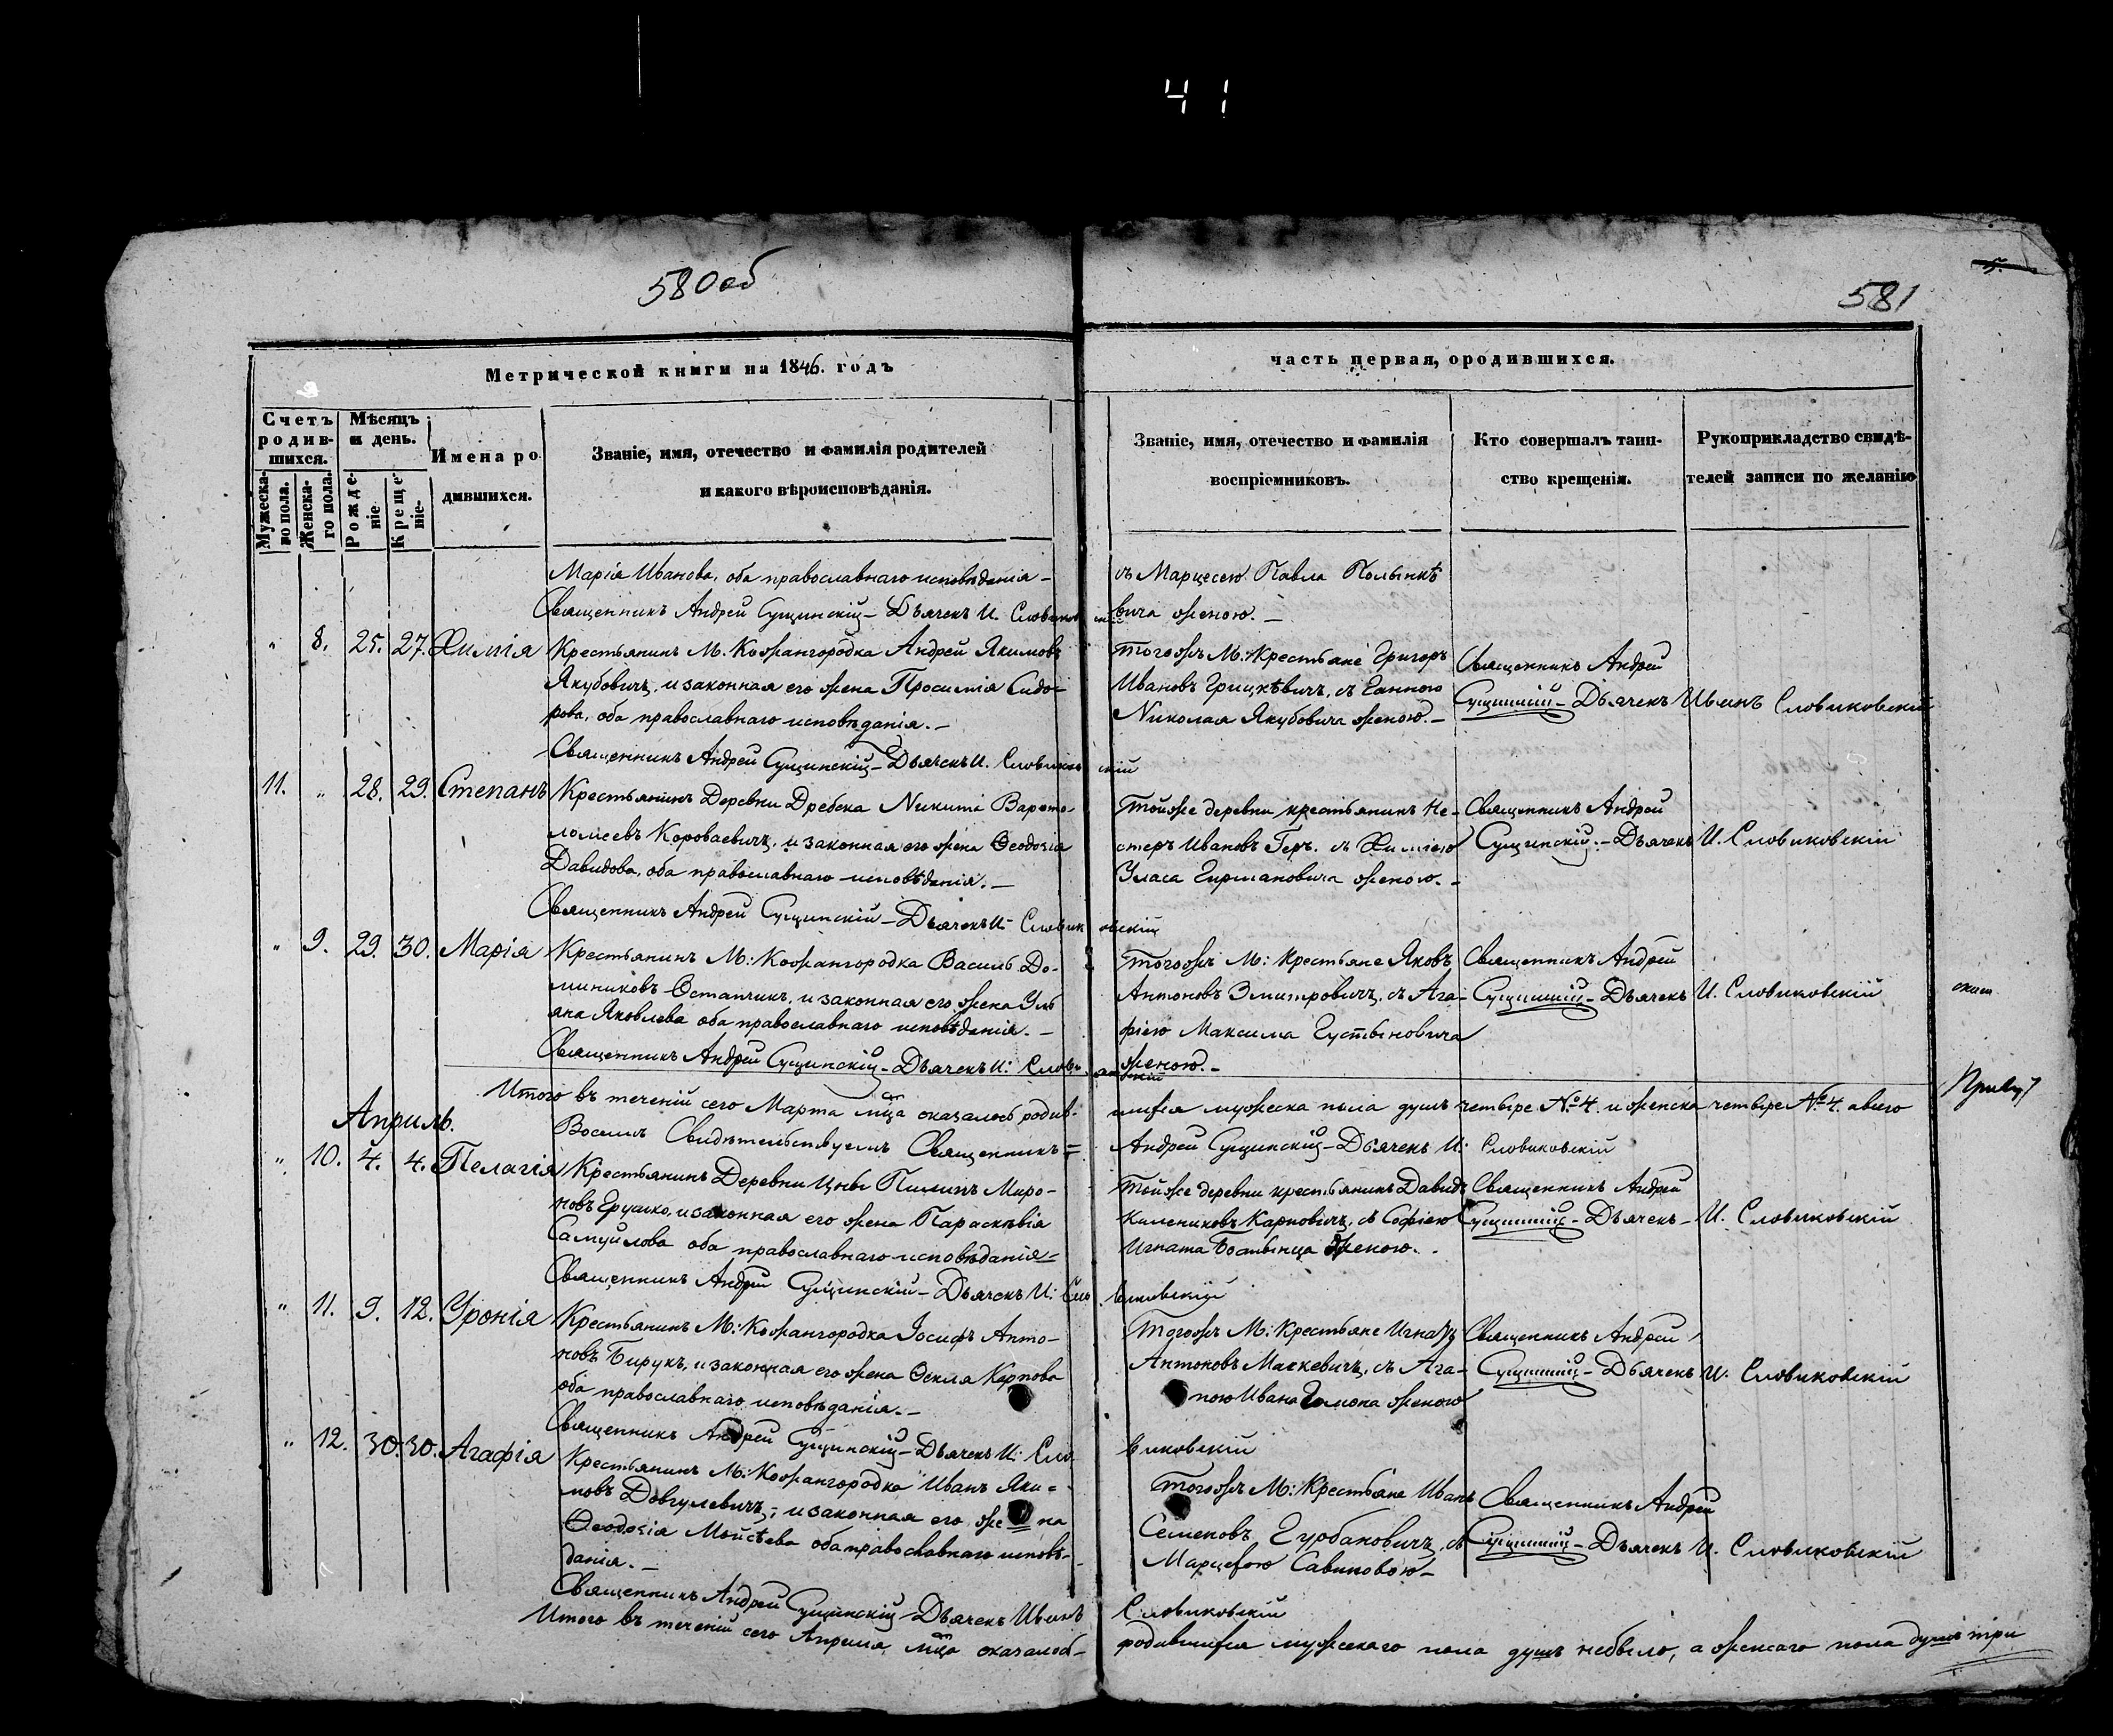 41
580 об
581
Метрической книги на 1846. годъ
часть первая, ородившихся.
Счетъ родив-шихся.
Мужеска-го пола.
Женска-го пола.
Мѣсяцъ и день.
Рожде-ніе
Креще-ніе
Имена ро
дившихся.
Званіе, имя, отечество и фамилія родителей
и какого вѣроисповѣданія.
Званіе, имя, отечество и фамилія
воспріемниковъ.
Кто совершалъ таин-
ство крещенія.
Рукоприкладство свидѣ-
телей записи по желанію
Марія Иванова, оба православнаго исповѣданія –
Священникъ Андрей Сущинскій – Дьячекъ И. Словиков
съ Марцесею Павла Полынкѣ
вича женою. –
" 8. 25. 27. Химія
Крестьянинъ М. Кожангородка Андрей Якимовъ
Якубовичъ, и законная его жена Просимія Сидо-
рова, оба православнаго исповѣданія. –
Священникъ Андрей Сущинскій – Дьячекъ И. Словиков скій
тогожъ М: Крестьяне Григоръ
Ивановъ Грицкѣвичъ, съ Ганною
Николая Якубовича женою. –
Священникъ Андрей
Сущинскій – Дьячекъ Иванъ Словиковскій
11. " 28. 29. Степанъ
Крестьянинъ Деревни Дребска Никита Варѳо-
ломеевъ Короваевичъ, и законная его жена Ѳеодозія
Давидова, оба православнаго исповѣданія. –
Священникъ Андрей Сущинскій – Дьячекъ И. Словик овскій
тойже деревни крестьянинъ Не-
стеръ Ивановъ Геръ. съ Химіею
Уласа Гирмановича женою. –
Священникъ Андрей
Сущинскій. – Дьячекъ И. Словиковскій
" 9. 29. 30. Марія
Крестьянинъ М: Кожангородка Василь До-
миниковъ Остапчикъ, и законная его жена Уль
яна Яковлева оба православнаго исповѣданія. –
Священникъ Андрей Сущинскій – Дьячекъ И: Слови ковскій
тогожъ М: Крестьяне Яковъ
Антоновъ Змитровичъ, съ Ага-
фіею Максима Густыновича
женою. –
Священникъ Андрей
Сущинскій – Дьячекъ И. Словиковскій
Итого въ теченіи сего Марта мца оказалось родив-
шихся мужеска пола душъ четыре №4. и женска четыре №4. а всего
Восемь Свидѣтельствуемъ Священникъ =
Андрей Сущинскій – Дьячекъ И: Словиковскій
Апрель.
" 10. 4. 4. Пелагія
Крестьянинъ Деревни Цны Пилипъ Миро-
новъ Грушко, и законная его жена Параскѣвія
Самуйлова оба православнаго исповѣданія =
Священникъ Андрей Сущинскій – Дьячекъ И: Сло виковскій
Тойже деревни крестьянинъ Давидъ
Калениковъ Карповичъ, съ Софіею
Игната Бостынца женою. .
Священникъ Андрей
Сущинскій – Дьячекъ – И. Словиковскій
" 11. 9. 12. Уронія
Крестьянинъ М: Кожангородка Іосифъ Анто-
новъ Бирукъ, и законная его жена Ѳекля Карпова
оба православнаго исповѣданія. –
Священникъ Андрей Сущинскій – Дьячекъ И: Сло виковскій
Тогожъ М: Крестьяне Игнатъ
Антоновъ Маскевичъ, съ Ага-
пою Ивана Гомона женою
Священникъ Андрей
Сущинскій – Дьячекъ И. Словиковскій
" 12. 30. 30. Агафія
Крестьянинъ М: Кожангородка Иванъ Яки=
мовъ Довгулевичъ, и законная его жена
Ѳеодозія Мойсѣева оба православнаго исповѣ-
данія. –
Священникъ Андрей Сущинскій – Дьячекъ Иванъ Словиковскій
тогожъ М: Крестьяне Иванъ
Семеновъ Гурбановичъ, съ
Марцесою Савиновою –
Священникъ Андрей
Сущинскій – Дьячекъ И. Словиковскій
Итого въ теченіи сего Апреля мца оказалось –
родившихся мужскаго пола душъ небыло, а женскаго пола душъ три